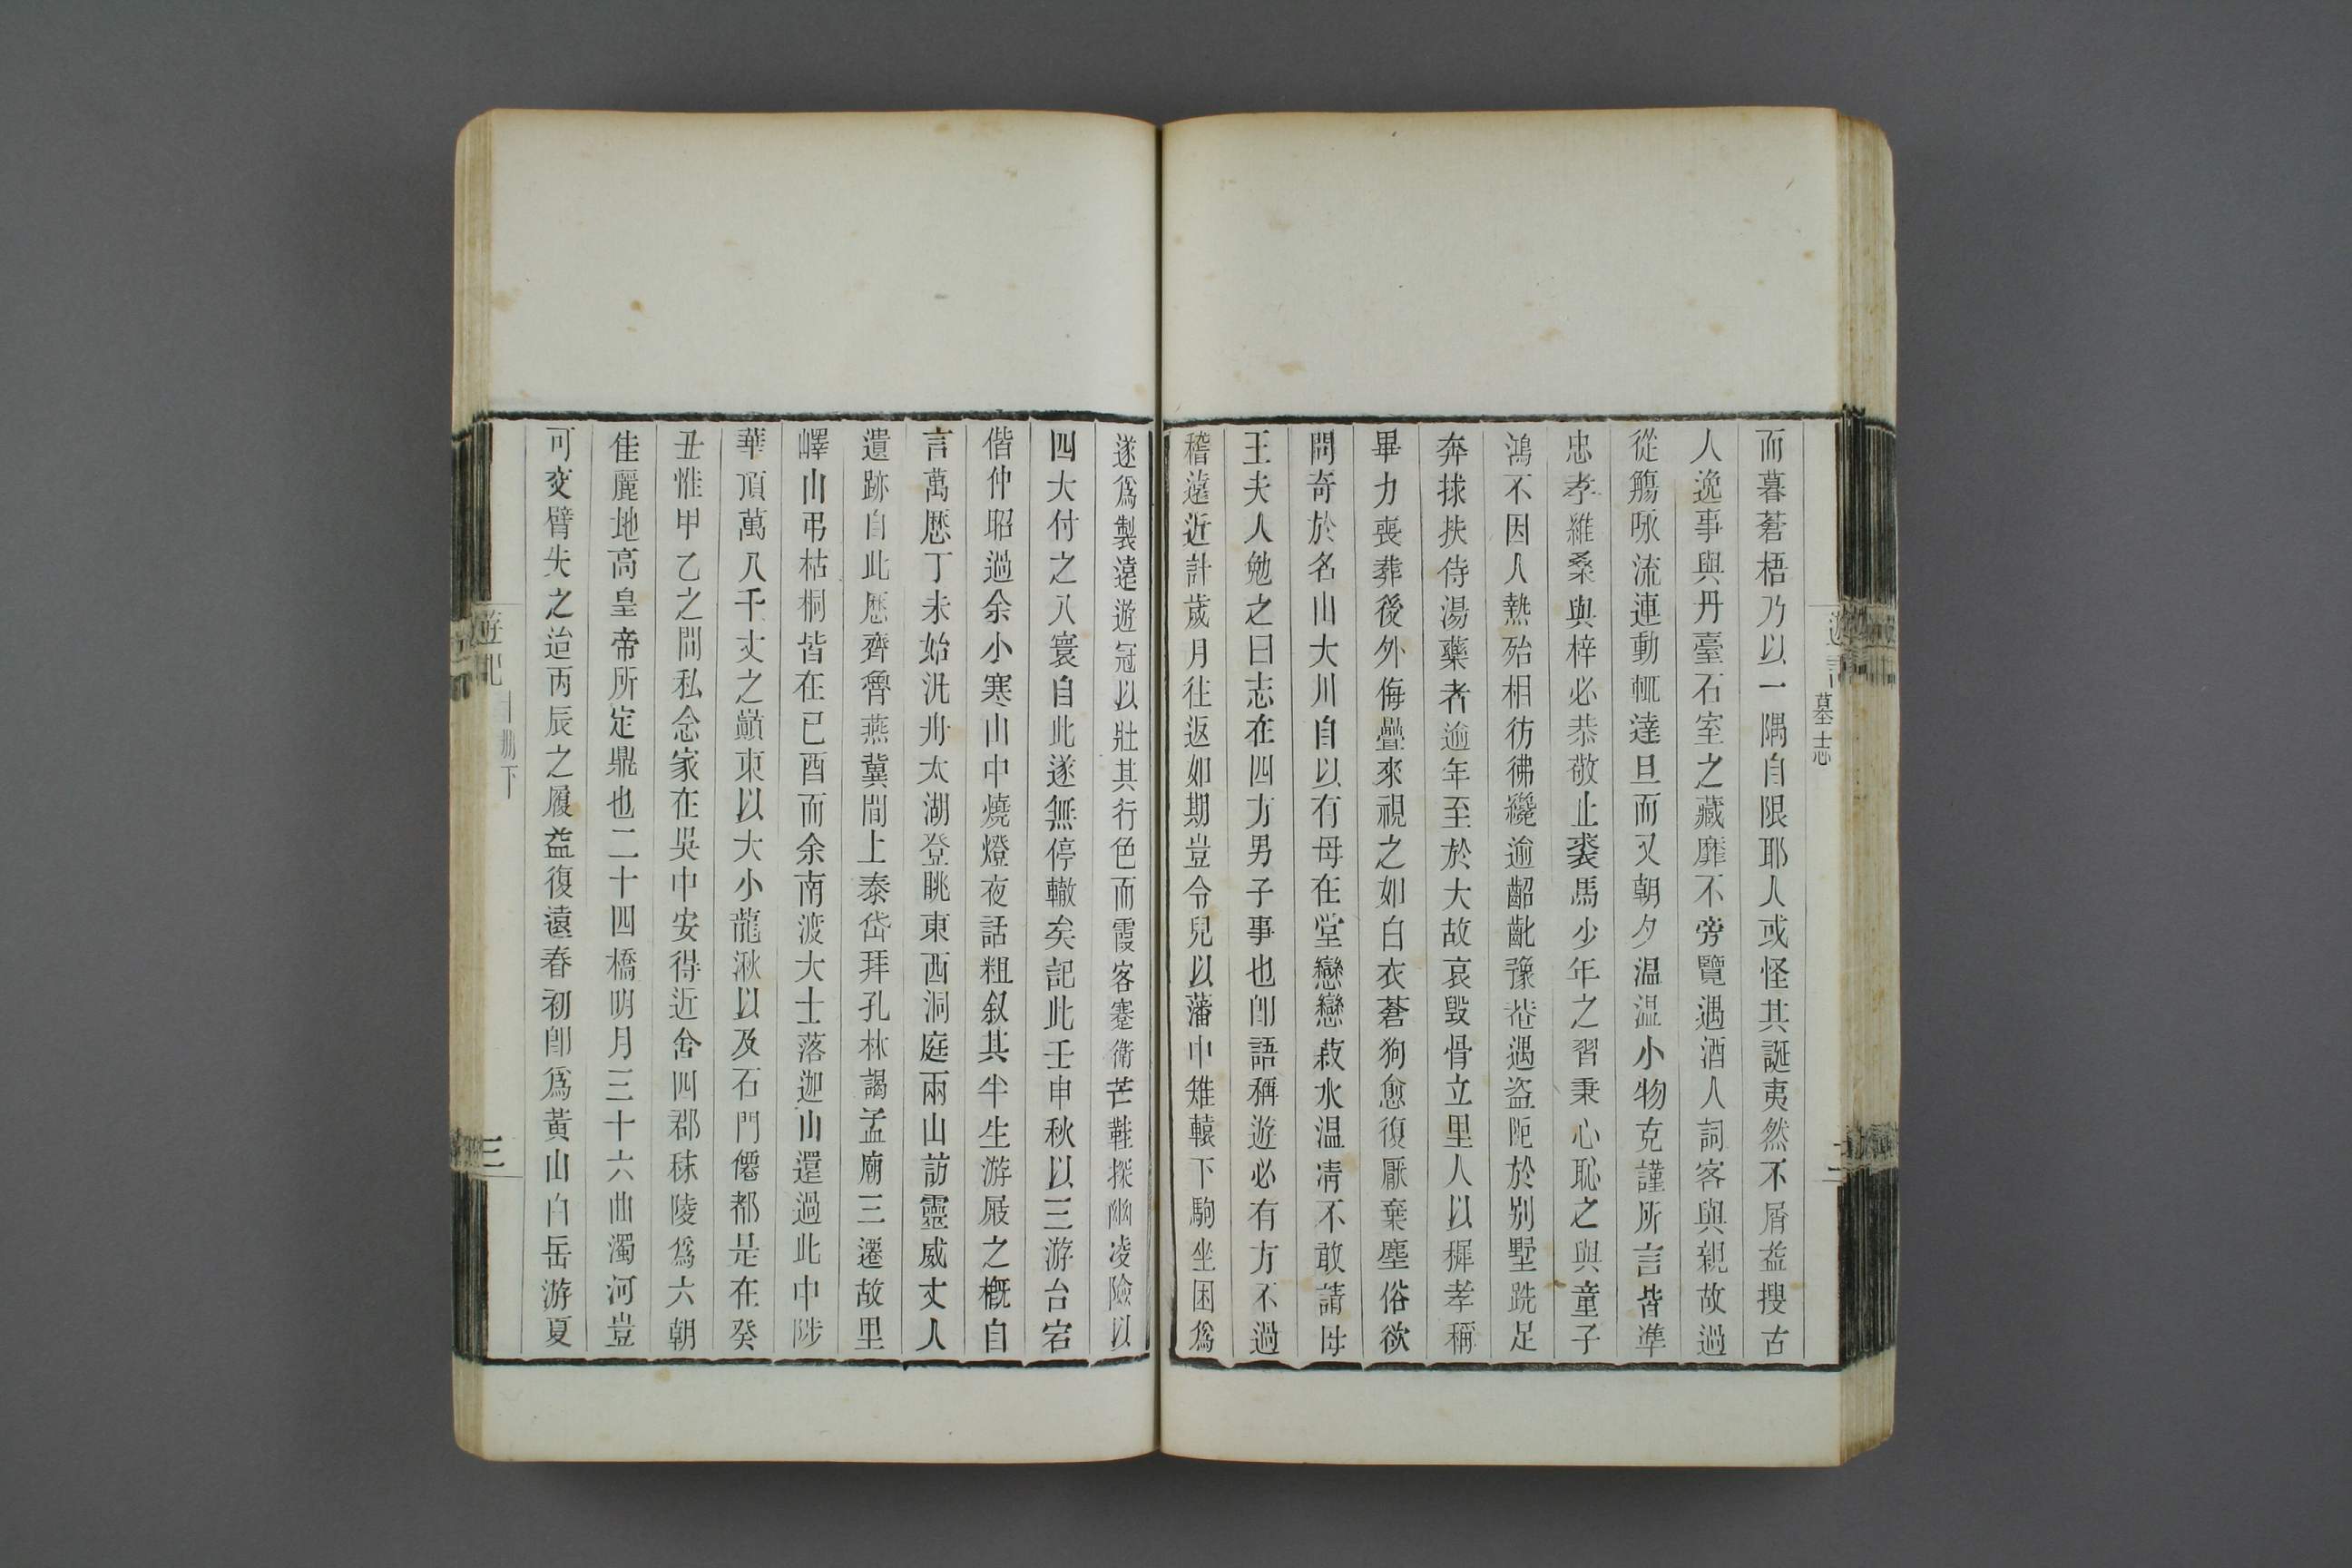 墓志
而暮蒼梧乃以一隅自限耶人或怪其誕夷然不屑益搜古
人逸事與丹臺石室之藏靡不旁覽遇酒人詞客與親故過
從觴咏流連動輒達旦而又朝夕温温小物克謹所言皆準
忠孝維桑與梓必恭敬止裘馬少年之習秉心恥之與童子
鴻不因人熱殆相彷彿纔逾齠齔豫菴遇盗阨於别墅跣足
奔捄扶侍湯藥者逾年至於大故哀毁骨立里人以穉孝稱
畢力喪葬後外侮疊來視之如白衣蒼狗愈復厭棄塵俗欲
問奇於名山大川自以有母在堂戀戀菽水温凊不敢請母
王夫人勉之曰志在四方男子事也卽語稱遊必有方不過
稽遠近計歲月往返如期豈令兒以藩中雉轅下駒坐困爲
遂爲製遠遊冠以壯其行色而霞客蹇衛芒鞋探幽凌險以
四大付之八寰自此遂無停轍矣記此壬申秋以三游台宕
偕仲昭過余小寒山中燒燈夜話粗叙其半生游屐之槪自
言萬歷丁未始汎舟太湖登眺東西洞庭兩山訪靈威丈人
遺跡自此歷齊魯燕冀間上泰岱拜孔林謁孟廟三遷故里
嶧山弔枯桐皆在已酉而余南渡大士落迦山還過此中陟
華頂萬八千丈之巓東以大小龍湫以及石門僊都是在癸
丑惟甲乙之間私念家在吳中安得近舍四郡秣陵爲六朝
佳麗地高皇帝所定鼎也二十四橋明月三十六曲濁河豈
可交臂失之迨丙辰之履益復遠春初卽爲黃山白岳游夏
遊記
下
三